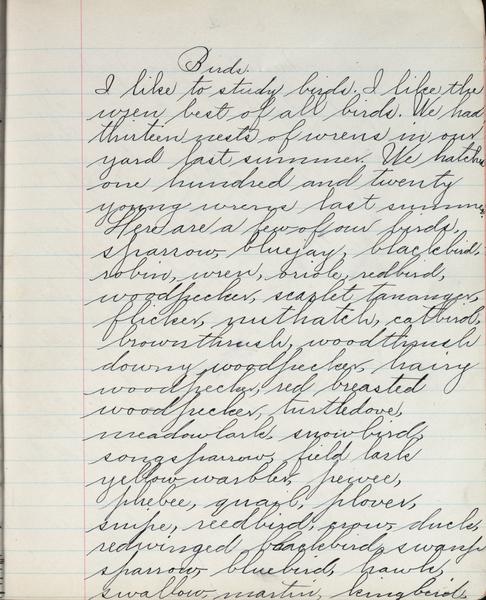 Birds.
I like to study birds. I like the
wren best of all birds. We had
thirteen nests of wrens in our
yard last summer. We hatched
one hundred and twenty
young wrens last summer.
Here are a few of our birds,
sparrow, bluejay, blackbird,
robin, wren, oriole, redbird,
woodpecker, scarlet tananger,
flicker, nuthatch, catbird,
brownthrush, woodthrush
downy woodpecker, hairy
woodpecker, red breasted
woodpecker, turtledove,
meadowlark, snowbird,
songsparrow, field lark
yellow warbler, pewee,
phebee, quail, plover,
snipe, reedbird, crow, duck,
redwinged blackbird, swamp
sparrow, bluebird, hawk,
swallow, martin, kingbird,